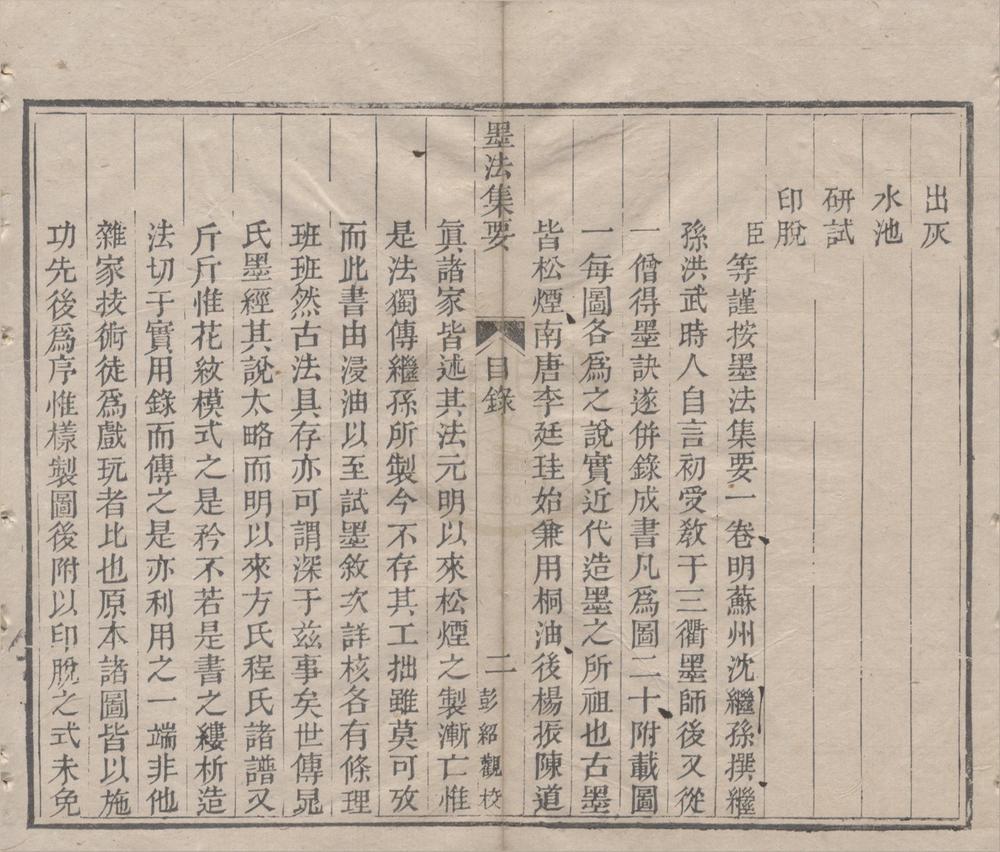 出灰
水池
研試
印脫
臣等謹按墨法集要一卷明蘇州沈繼孫撰繼
孫洪武時人自言初受敎于三衢墨師後又從
一僧得墨訣遂併錄成書凡爲圖二十附載圖
一每圖各爲之說實近代造墨之所祖也古墨
皆松煙南唐李廷珪始兼用桐油後楊振陳道
墨法集要
目錄
二
彭紹觀校
眞諸家皆述其法元明以來松煙之製漸亡惟
是法獨傳繼孫所製今不存其工拙雖莫可攷
而此書由浸油以至試墨敘次詳核各有條理
班班然古法具存亦可謂深于兹事矣世傳晁
氏墨經其說太略而明以來方氏程氏諸譜又
斤斤惟花紋模式之是矜不若是書之縷析造
法切于實用錄而傳之是亦利用之一端非他
雜家技術徒爲戲玩者比也原本諸圖皆以施
功先後爲序惟樣製圖後附以印脫之式未免